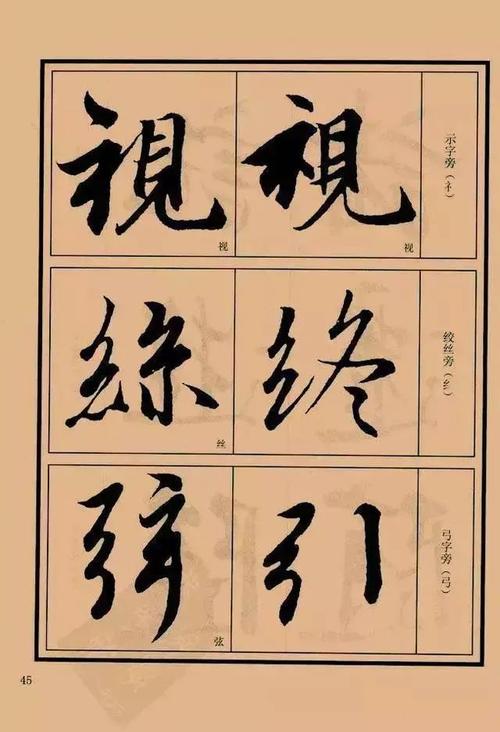 示字旁（礻）
視
视
視
视
绞丝旁（纟）
终
絲
丝
弓字旁（弓）
引
弦
弦
45